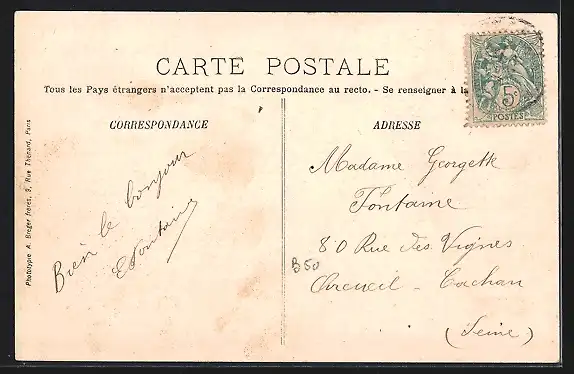 CARTE POSTALE
Tous les Pays étrangers n'acceptent pas la Correspondance au recto. - Se renseigner à la
5c
POSTES
CORRESPONDANCE
Bien le bonjour
E Fontaine
ADRESSE
Madame Georgette
Fontaine
80 Rue des Vignes
Arcueil - Cachan
(Seine)
B50
Phototypie A. Breger frères, 9, Rue Thénard, Paris